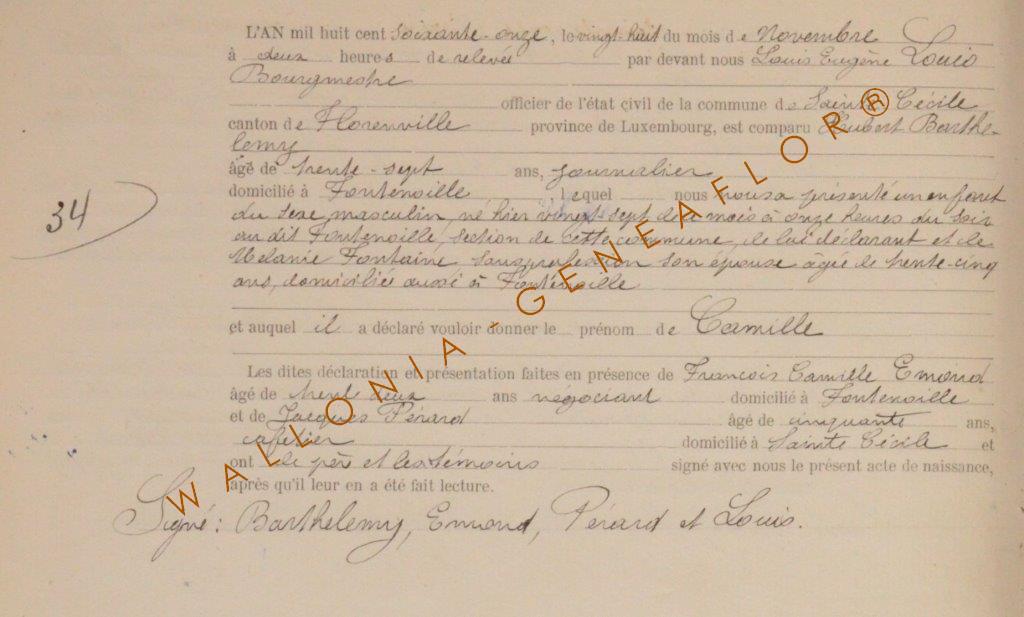 L'AN mil huit cent soixante-onze, le vingt-huit du mois de Novembre
à deux heures de relevée par devant nous Louis Eugène Louis
Bourgmestre
officier de l'état civil de la commune de Sainte Cécile
canton de Florenville province de Luxembourg, est comparu Hubert Barthe-
lemy
âgé de trente-sept ans, journalier
domicilié à Fontenoille lequel nous nous a présenté un enfant
du sexe masculin, né hier vingt sept de mois à onze heures du soir
au dit Fontenoille, section de cette commune, de lui déclarant et de
Mélanie Fontaine sans profession son épouse âgée de trente-cinq
ans, domiciliée aussi à Fontenoille
et auquel il a déclaré vouloir donner le prénom de Camille
Les dites déclaration et présentation faites en présence de François Camille Emond
âgé de trente deux ans négociant domicilié à Fontenoille
et de Jacques Pérard âgé de cinquante ans,
cafetier domicilié à Sainte Cécile et
ont le père et les témoins signé avec nous le présent acte de naissance,
après qu'il leur en a été fait lecture.
Signé : Barthelemy, Emond, Pérard et Louis.
34
WALLONIA - GENEAFLOR®